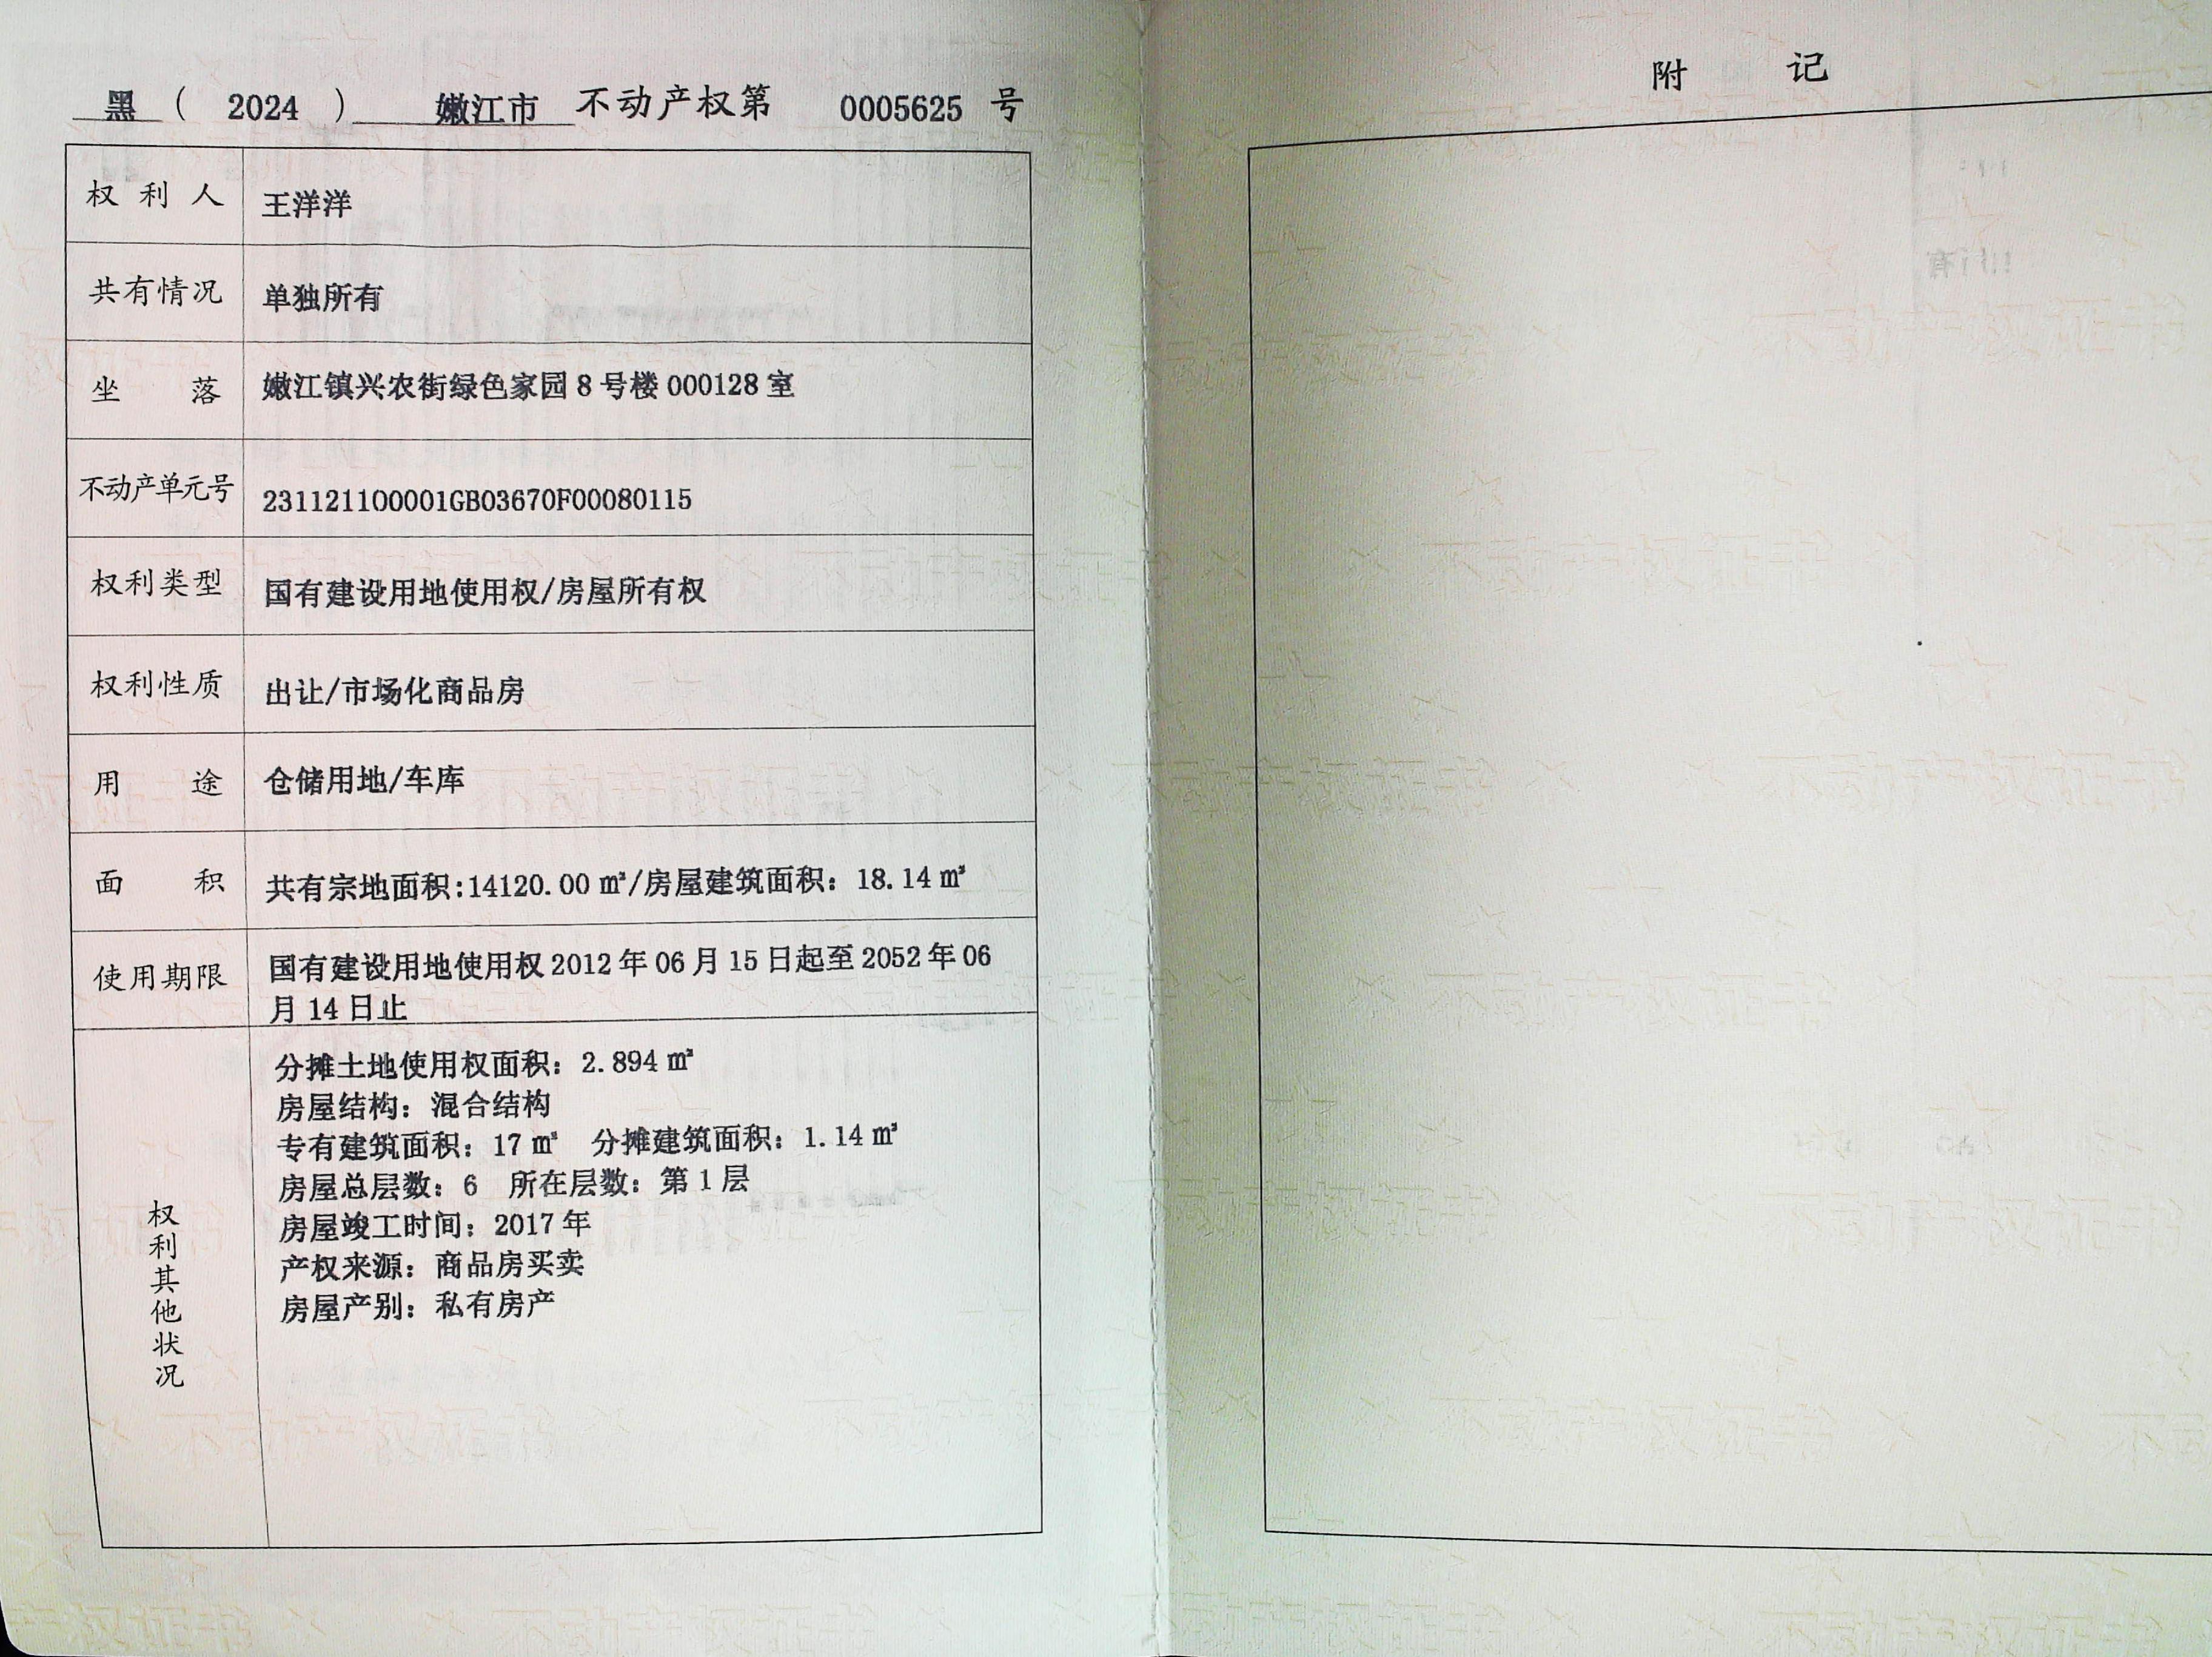 黑 ( 2024 ) 嫩江市 不动产权第 0005625 号
权利人 王洋洋
共有情况 单独所有
坐落 嫩江镇兴农街绿色家园 8 号楼 000128 室
不动产单元号 231121100001GB03670F00080115
权利类型 国有建设用地使用权/房屋所有权
权利性质 出让/市场化商品房
用途 仓储用地/车库
面积 共有宗地面积:14120.00 ㎡/房屋建筑面积: 18.14 ㎡
使用期限 国有建设用地使用权 2012 年 06 月 15 日起至 2052 年 06
月 14 日止
权利其他状况
分摊土地使用权面积: 2.894 ㎡
房屋结构: 混合结构
专有建筑面积: 17 ㎡ 分摊建筑面积: 1.14 ㎡
房屋总层数: 6 所在层数: 第 1 层
房屋竣工时间: 2017 年
产权来源: 商品房买卖
房屋产别: 私有房产
附记